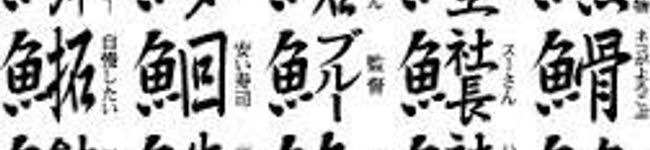 魚骨
ネコがよろこぶ
魚社長
スーさん
魚ブルー
監督
魚回
安い寿司
魚拓
自慢したい